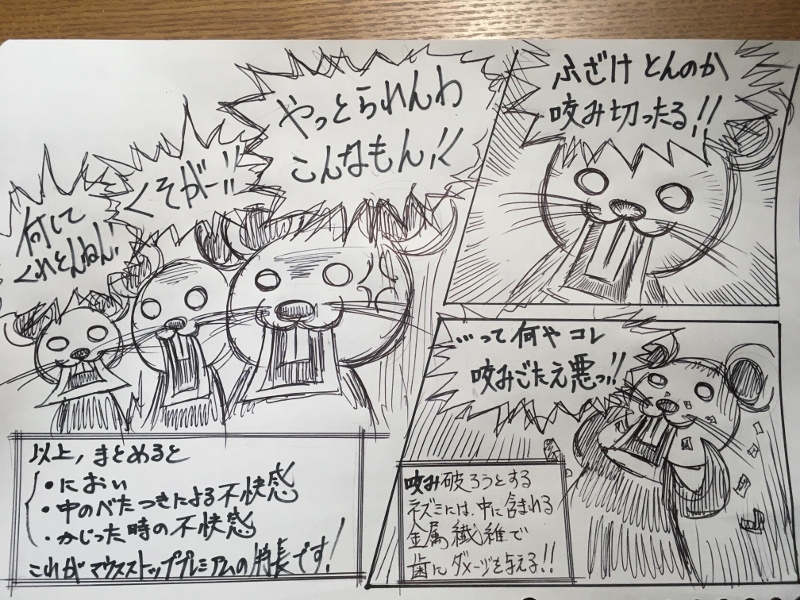 ふざけとんのか
咬み切ったる!!
…って何やコレ
咬みごたえ悪っ!!
咬み破ろうとする
ネズミには、中に含まれる
金属繊維で
歯にダメージを与える!!
やっとられんわ
こんなもん!!
くそがー!!
何して
くれとんねん!
以上、まとめると
・におい
・中のべたつきによる不快感
・かじった時の不快感
これがマウスストッププレミアムの特長です!